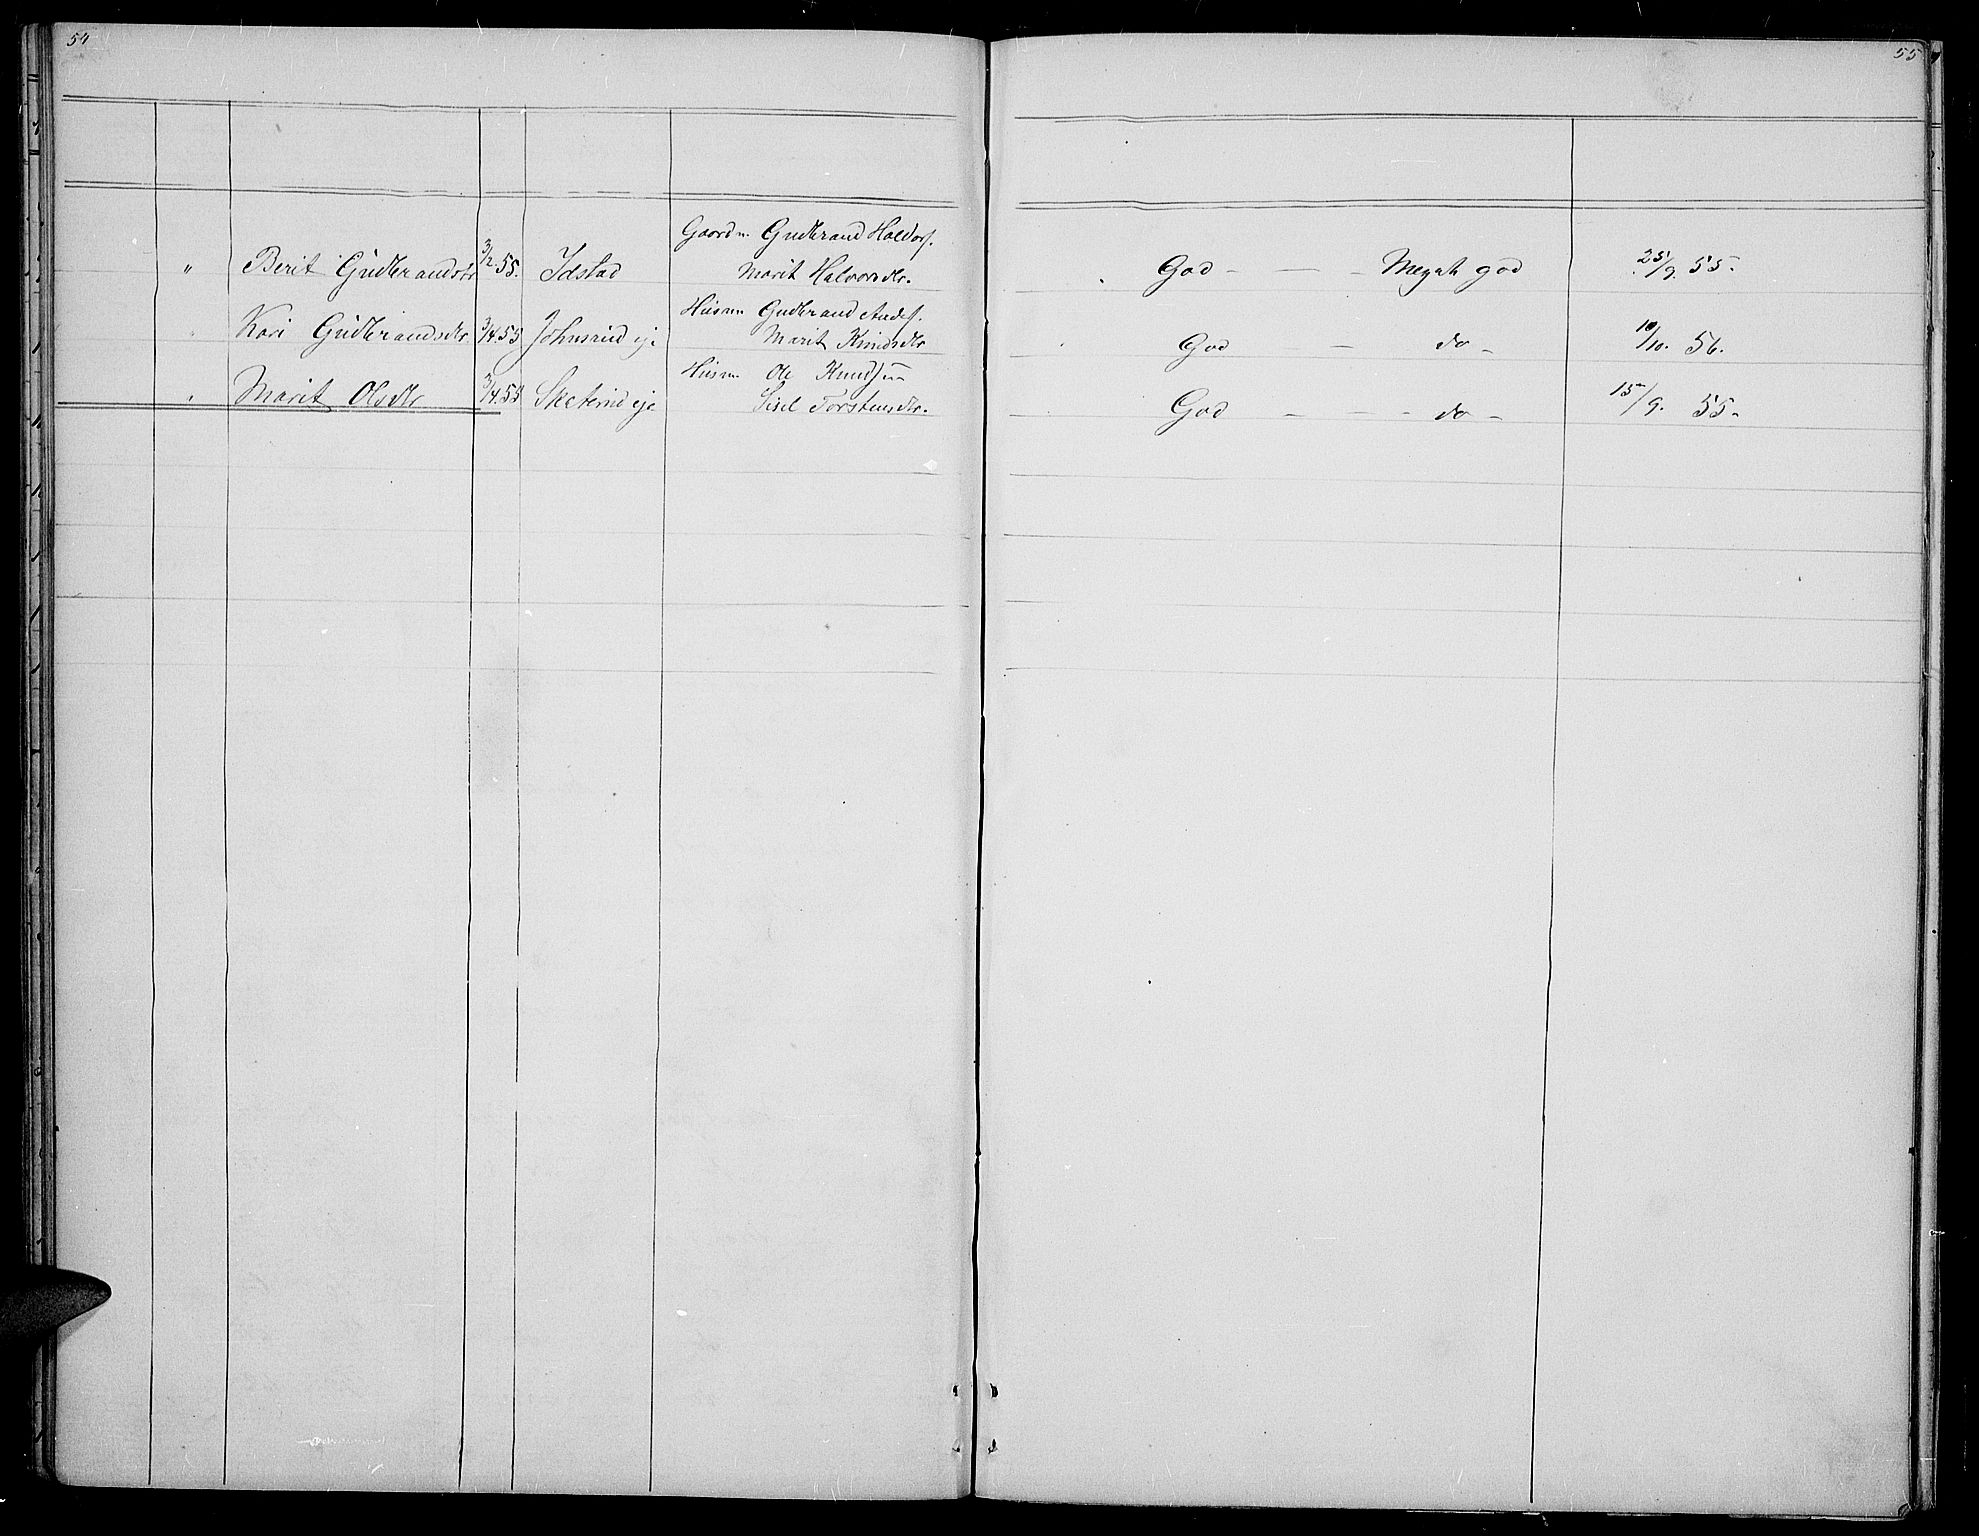 54
55
Gaardm. Gudbrand Haldors.
" Berit Gudbrandsdr 3/2. 55. Idstad Marit Halvorsdr. God - — - Meget god 25/9. 55.
Husm Gudbrand Anders.
" Kari Gudbrandsdr 3/4. 55 Johnsrud eje Marit Knudsdr God — do - 10/10. 56.
Husm. Ole Knudsen
" Marit Olsdr 3/4. 55 eje Sisel Torstensdr. God - - - do - 15/9. 55.